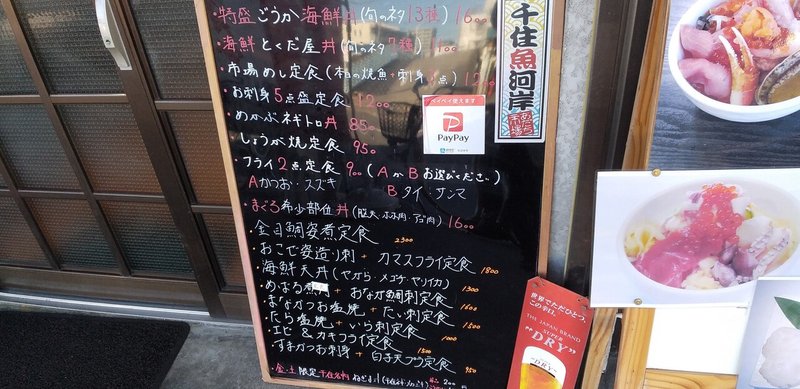 ・特盛ごうか海鮮丼(旬のネタ13種) 1600
・海鮮とくだ屋丼(旬のネタ7種) 1100
・市場めし定食(本日の焼魚+刺身 点)
・お刺身5点盛定食 1200
・めかぶネギトロ丼 850
・しょうが焼定食 950
・フライ2点定食 900 (AかBお選びください)
Aかつお・スズキ Bタイ・サンマ
・まぐろ希少部位丼(脳天・ホホ肉・アゴ肉) 1600
金目鯛姿煮定食 2300
おこぜ姿造り刺+カマスフライ定食 1800
海鮮天丼(ヤガラ・メゴチ・ヤリイカ)
めばる煮付+おなが鯛刺定食 1300
まながつお塩焼+たい刺定食 1600
たら塩焼+いら刺定食 1500
エビ&カキフライ定食 1000
すまがつお刺身+白子天プラ定食 1500
950
金・土限定
千住魚河岸
ペイペイ使えます
PayPay
世界でただひとつ、
この辛口。
THE JAPAN BRAND
SUPER
"DRY"